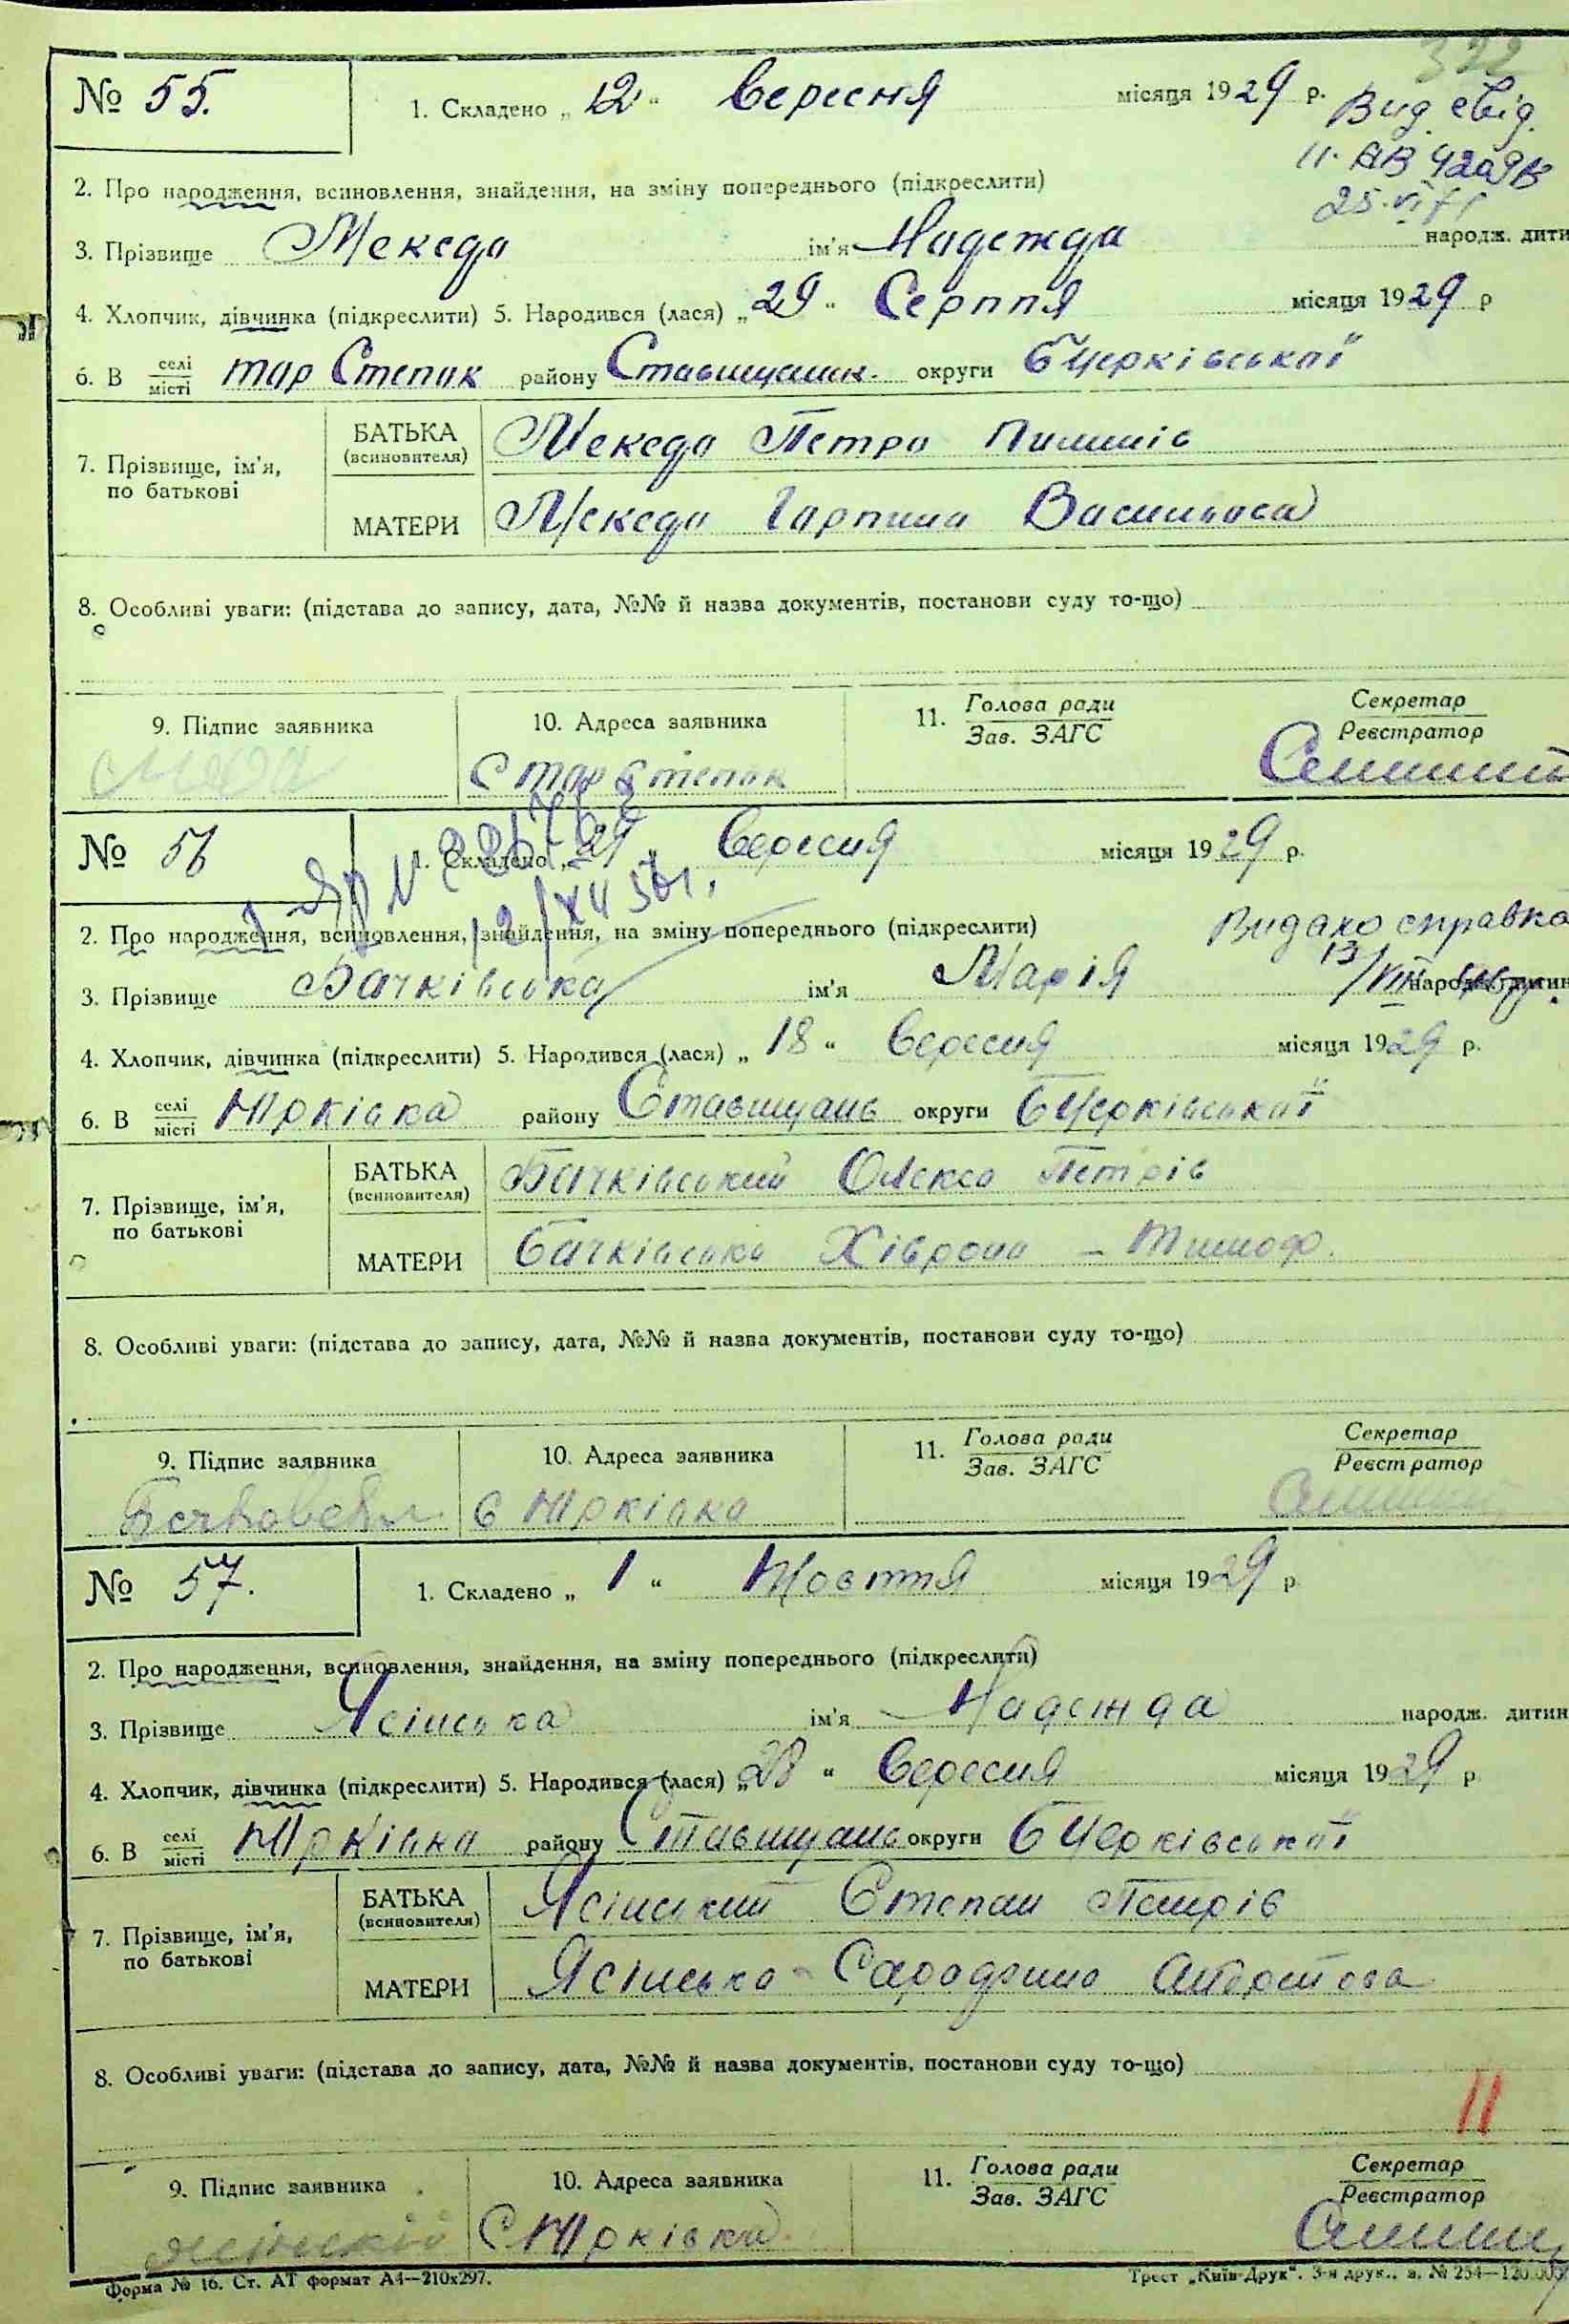 322
№ 55. 1. Складено „ 12 “ Вересня місяця 1929 р.
Вид. свід.
25.VI 71
2. Про народження, всиновлення, знайдення, на зміну попереднього (підкреслити)
3. Прізвище Мекеда ім'я Надежда народж. дити
4. Хлопчик, дівчинка (підкреслити) 5. Народився (лася) „ 29 “ Серпня місяця 1929 р
6. В селі/місті тар Степок району Ставищанськ. округи БЦерківської
7. Прізвище, ім'я, по батькові
БАТЬКА (всиновителя) Мекеда Петро Пилипів
МАТЕРИ Мекеда Гарпина Василівва
8. Особливі уваги: (підстава до запису, дата, №№ й назва документів, постанови суду то-що)
9. Підпис заявника 10. Адреса заявника 11. Голова ради/Зав. ЗАГС Секретар/Реєстратор
С тар Степок
№ 56 1. Складено „ 29 “ Вересня місяця 1929 р.
2. Про народження, всиновлення, знайдення, на зміну попереднього (підкреслити)
Видано справка
13/VIII
3. Прізвище Бачківська ім'я Марія народж. дитин
4. Хлопчик, дівчинка (підкреслити) 5. Народився (лася) „ 18 “ Вересня місяця 1929 р.
6. В селі/місті Юрківка району Ставищансь округи БЦерківської
7. Прізвище, ім'я, по батькові
БАТЬКА (всиновителя) Бачківський Олекса Петрів
МАТЕРИ Бачківська Хіврона – Тимоф.
8. Особливі уваги: (підстава до запису, дата, №№ й назва документів, постанови суду то-що)
9. Підпис заявника 10. Адреса заявника 11. Голова ради/Зав. ЗАГС Секретар/Реєстратор
с Юрківка
№ 57. 1. Складено „ 1 “ Жовтня місяця 1929 р
2. Про народження, всиновлення, знайдення, на зміну попереднього (підкреслити)
3. Прізвище Ясінська ім'я Надежда народж. дитин
4. Хлопчик, дівчинка (підкреслити) 5. Народився (лася) „ 28 “ Вересня місяця 1929 р
6. В селі/місті Юрківка району Ставищансь округи БЦерківської
7. Прізвище, ім'я, по батькові
БАТЬКА (всиновителя) Ясінський Степан Петрів
МАТЕРИ Ясінська Сарафина
8. Особливі уваги: (підстава до запису, дата, №№ й назва документів, постанови суду то-що)
11
9. Підпис заявника 10. Адреса заявника 11. Голова ради/Зав. ЗАГС Секретар/Реєстратор
Ясінський С Юрківка
Форма № 16. Ст. АТ формат А4—210х297. Трест „Київ-Друк“. 3-я друк., з. № 254—120.000